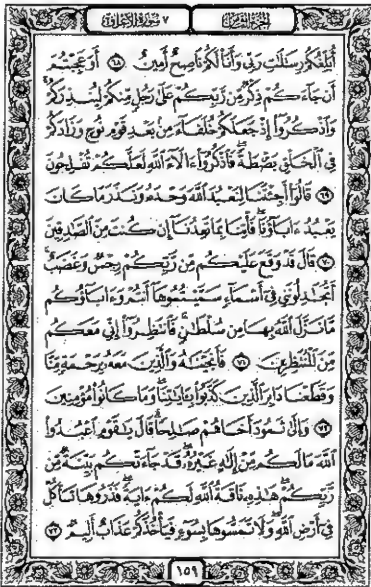 الجزء الثامن
٧ سورة الأعراف
أُبَلِّغُكُمْ رِسَٰلَٰتِ رَبِّي وَأَنَا۠ لَكُمْ نَاصِحٌ أَمِينٌ ٦٨ أَوَعَجِبْتُمْ
أَن جَآءَكُمْ ذِكْرٌ مِّن رَّبِّكُمْ عَلَىٰ رَجُلٍ مِّنكُمْ لِيُنذِرَكُمْ
وَٱذْكُرُوٓا۟ إِذْ جَعَلَكُمْ خُلَفَآءَ مِنۢ بَعْدِ قَوْمِ نُوحٍ وَزَادَكُمْ
فِي ٱلْخَلْقِ بَصْۜطَةً فَٱذْكُرُوٓا۟ ءَالَآءَ ٱللَّهِ لَعَلَّكُمْ تُفْلِحُونَ
٦٩ قَالُوٓا۟ أَجِئْتَنَا لِنَعْبُدَ ٱللَّهَ وَحْدَهُۥ وَنَذَرَ مَا كَانَ
يَعْبُدُ ءَابَآؤُنَا فَأْتِنَا بِمَا تَعِدُنَآ إِن كُنتَ مِنَ ٱلصَّٰدِقِينَ
٧٠ قَالَ قَدْ وَقَعَ عَلَيْكُم مِّن رَّبِّكُمْ رِجْسٌ وَغَضَبٌ
أَتُجَٰدِلُونَنِي فِيٓ أَسْمَآءٍ سَمَّيْتُمُوهَآ أَنتُمْ وَءَابَآؤُكُم
مَّا نَزَّلَ ٱللَّهُ بِهَا مِن سُلْطَٰنٍ فَٱنتَظِرُوٓا۟ إِنِّي مَعَكُم
مِّنَ ٱلْمُنتَظِرِينَ ٧١ فَأَنجَيْنَٰهُ وَٱلَّذِينَ مَعَهُۥ بِرَحْمَةٍ مِّنَّا
وَقَطَعْنَا دَابِرَ ٱلَّذِينَ كَذَّبُوا۟ بِـَٔايَٰتِنَا وَمَا كَانُوا۟ مُؤْمِنِينَ
٧٢ وَإِلَىٰ ثَمُودَ أَخَاهُمْ صَٰلِحًا قَالَ يَٰقَوْمِ ٱعْبُدُوا۟
ٱللَّهَ مَا لَكُم مِّنْ إِلَٰهٍ غَيْرُهُۥ قَدْ جَآءَتْكُم بَيِّنَةٌ مِّن
رَّبِّكُمْ هَٰذِهِۦ نَاقَةُ ٱللَّهِ لَكُمْ ءَايَةً فَذَرُوهَا تَأْكُلْ
فِيٓ أَرْضِ ٱللَّهِ وَلَا تَمَسُّوهَا بِسُوٓءٍ فَيَأْخُذَكُمْ عَذَابٌ أَلِيمٌ ٧٣
١٥٩